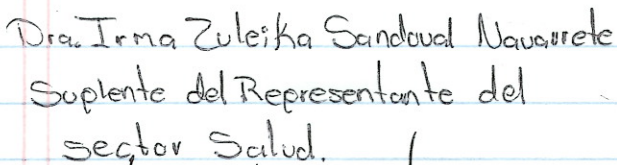 Dra. Irma Zuleika Sandoval Navarrete
Suplente del Representante del
sector Salud.